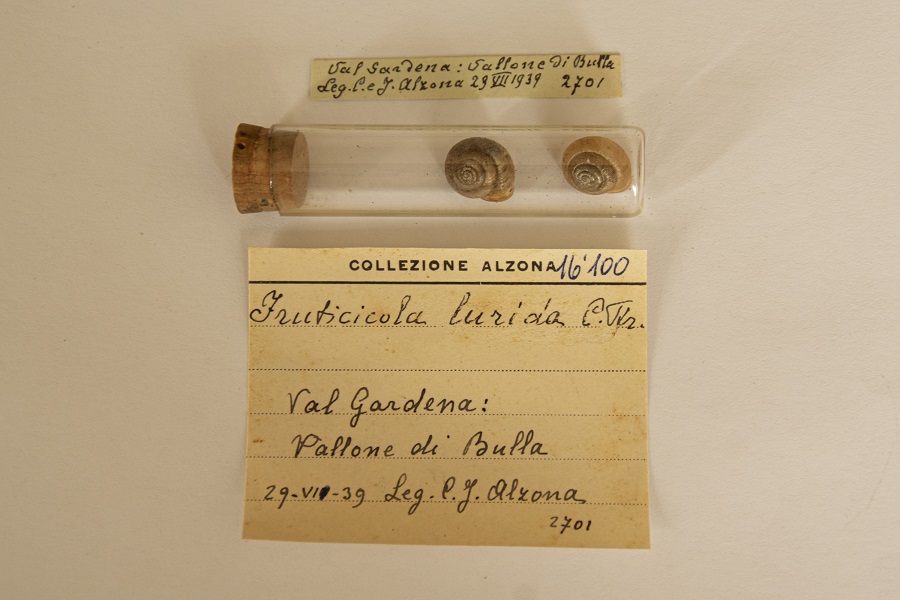 Val Gardena: Vallone di Bulla
Leg. C. e J. Alzona 29 VII 1939 2701
COLLEZIONE ALZONA 16'100
Fruticicola lurida C. Pfr.
Val Gardena:
Vallone di Bulla
29-VII-39 Leg. C. J. Alzona
2701